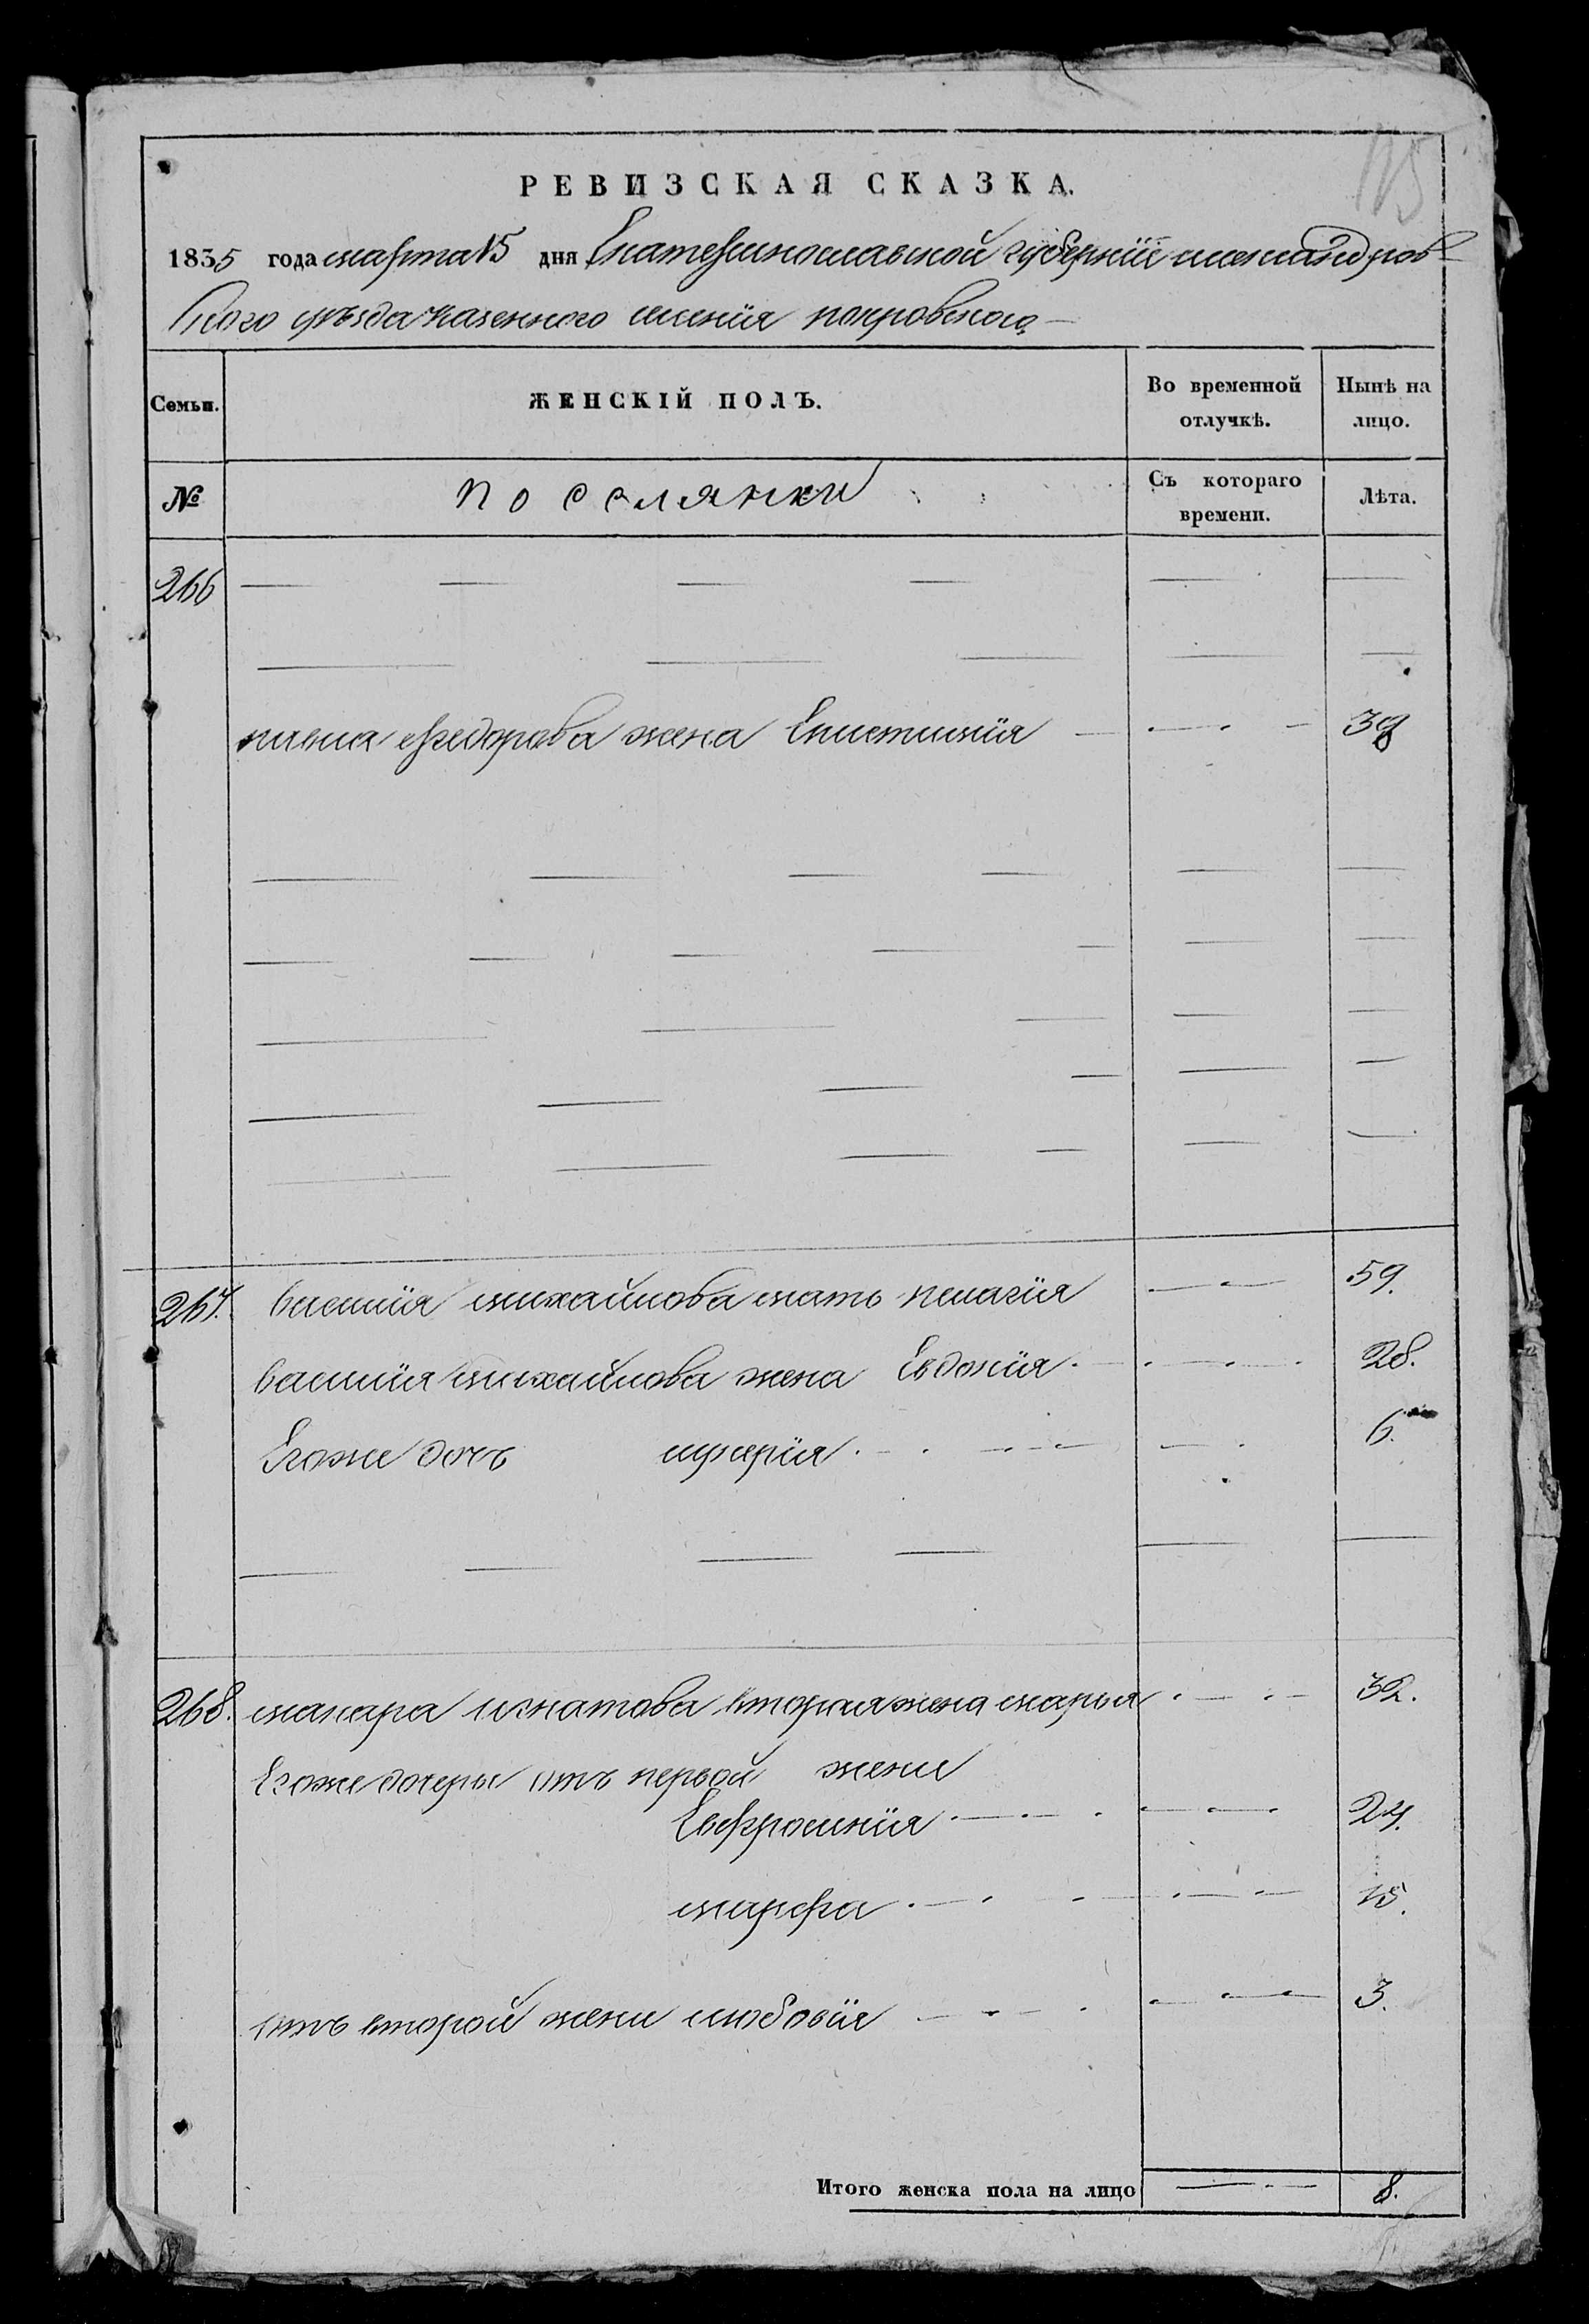 115
РЕВИЗСКАЯ СКАЗКА.
1835 года марта 15 дня Екатеринославской губернїи александров
ского уѣзда казенного имѣнїя покровского
Семьи. ЖЕНСКІЙ ПОЛЪ. Во временной отлучкѣ. Нынѣ на лицо.
№ поселянки Съ котораго времени. Лѣта.
266
павла федорова жена Епистимия 38
267. василїя михайлова мать пелагїя 59.
василїя михайлова жена Евдокїя 28.
Егоже дочь 6.
268. макара игнатова вторая жена марья 32.
Егоже дочеры отъ первой жени
Евфросинїя 24.
марфа 15.
отъ второй жени любовїя 3.
Итого женска пола на лицо 8.